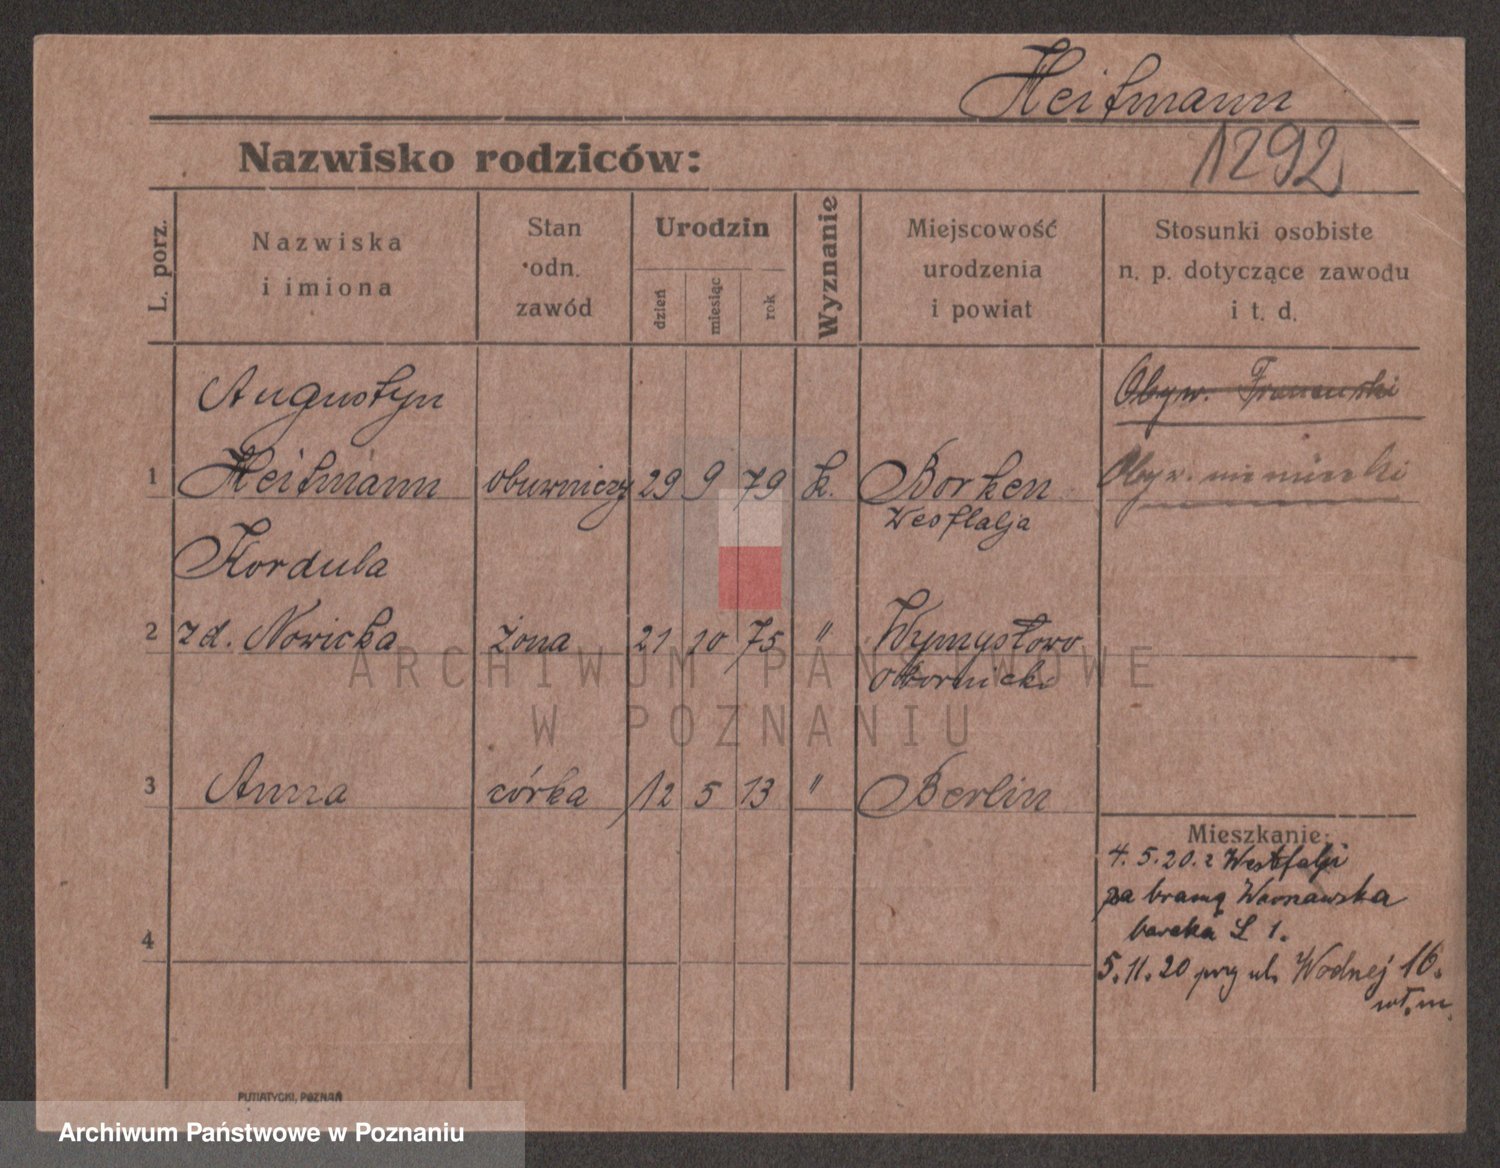 Heitmann
1292
Nazwisko rodziców:
L. porz.
Nazwiska
i imiona
Stan
odn.
zawód
Urodzin
dzień
miesiąc
rok
Wyznanie
Miejscowość
urodzenia
i powiat
Stosunki osobiste
n. p. dotyczące zawodu
i t. d.
Augustyn
Obyw. Francuski
1 Heitmann oburniczy 29 9 79 k. Borken Obyw. niemiecki
Westfalja
Kordula
2 zd. Nowicka żona 21 10 75 " Wymysłowo
Obornicki
3 Anna córka 12 5 13 " Berlin
Mieszkanie:
4. 5. 20. z Westfalji
za bramą Warszawska
baraka L 1.
4
5. 11. 20 przy ul. Wodnej 16.
wł. m.
PUTIATYCKI, POZNAŃ
ARCHIWUM PAŃSTWOWE
W POZNANIU
Archiwum Państwowe w Poznaniu